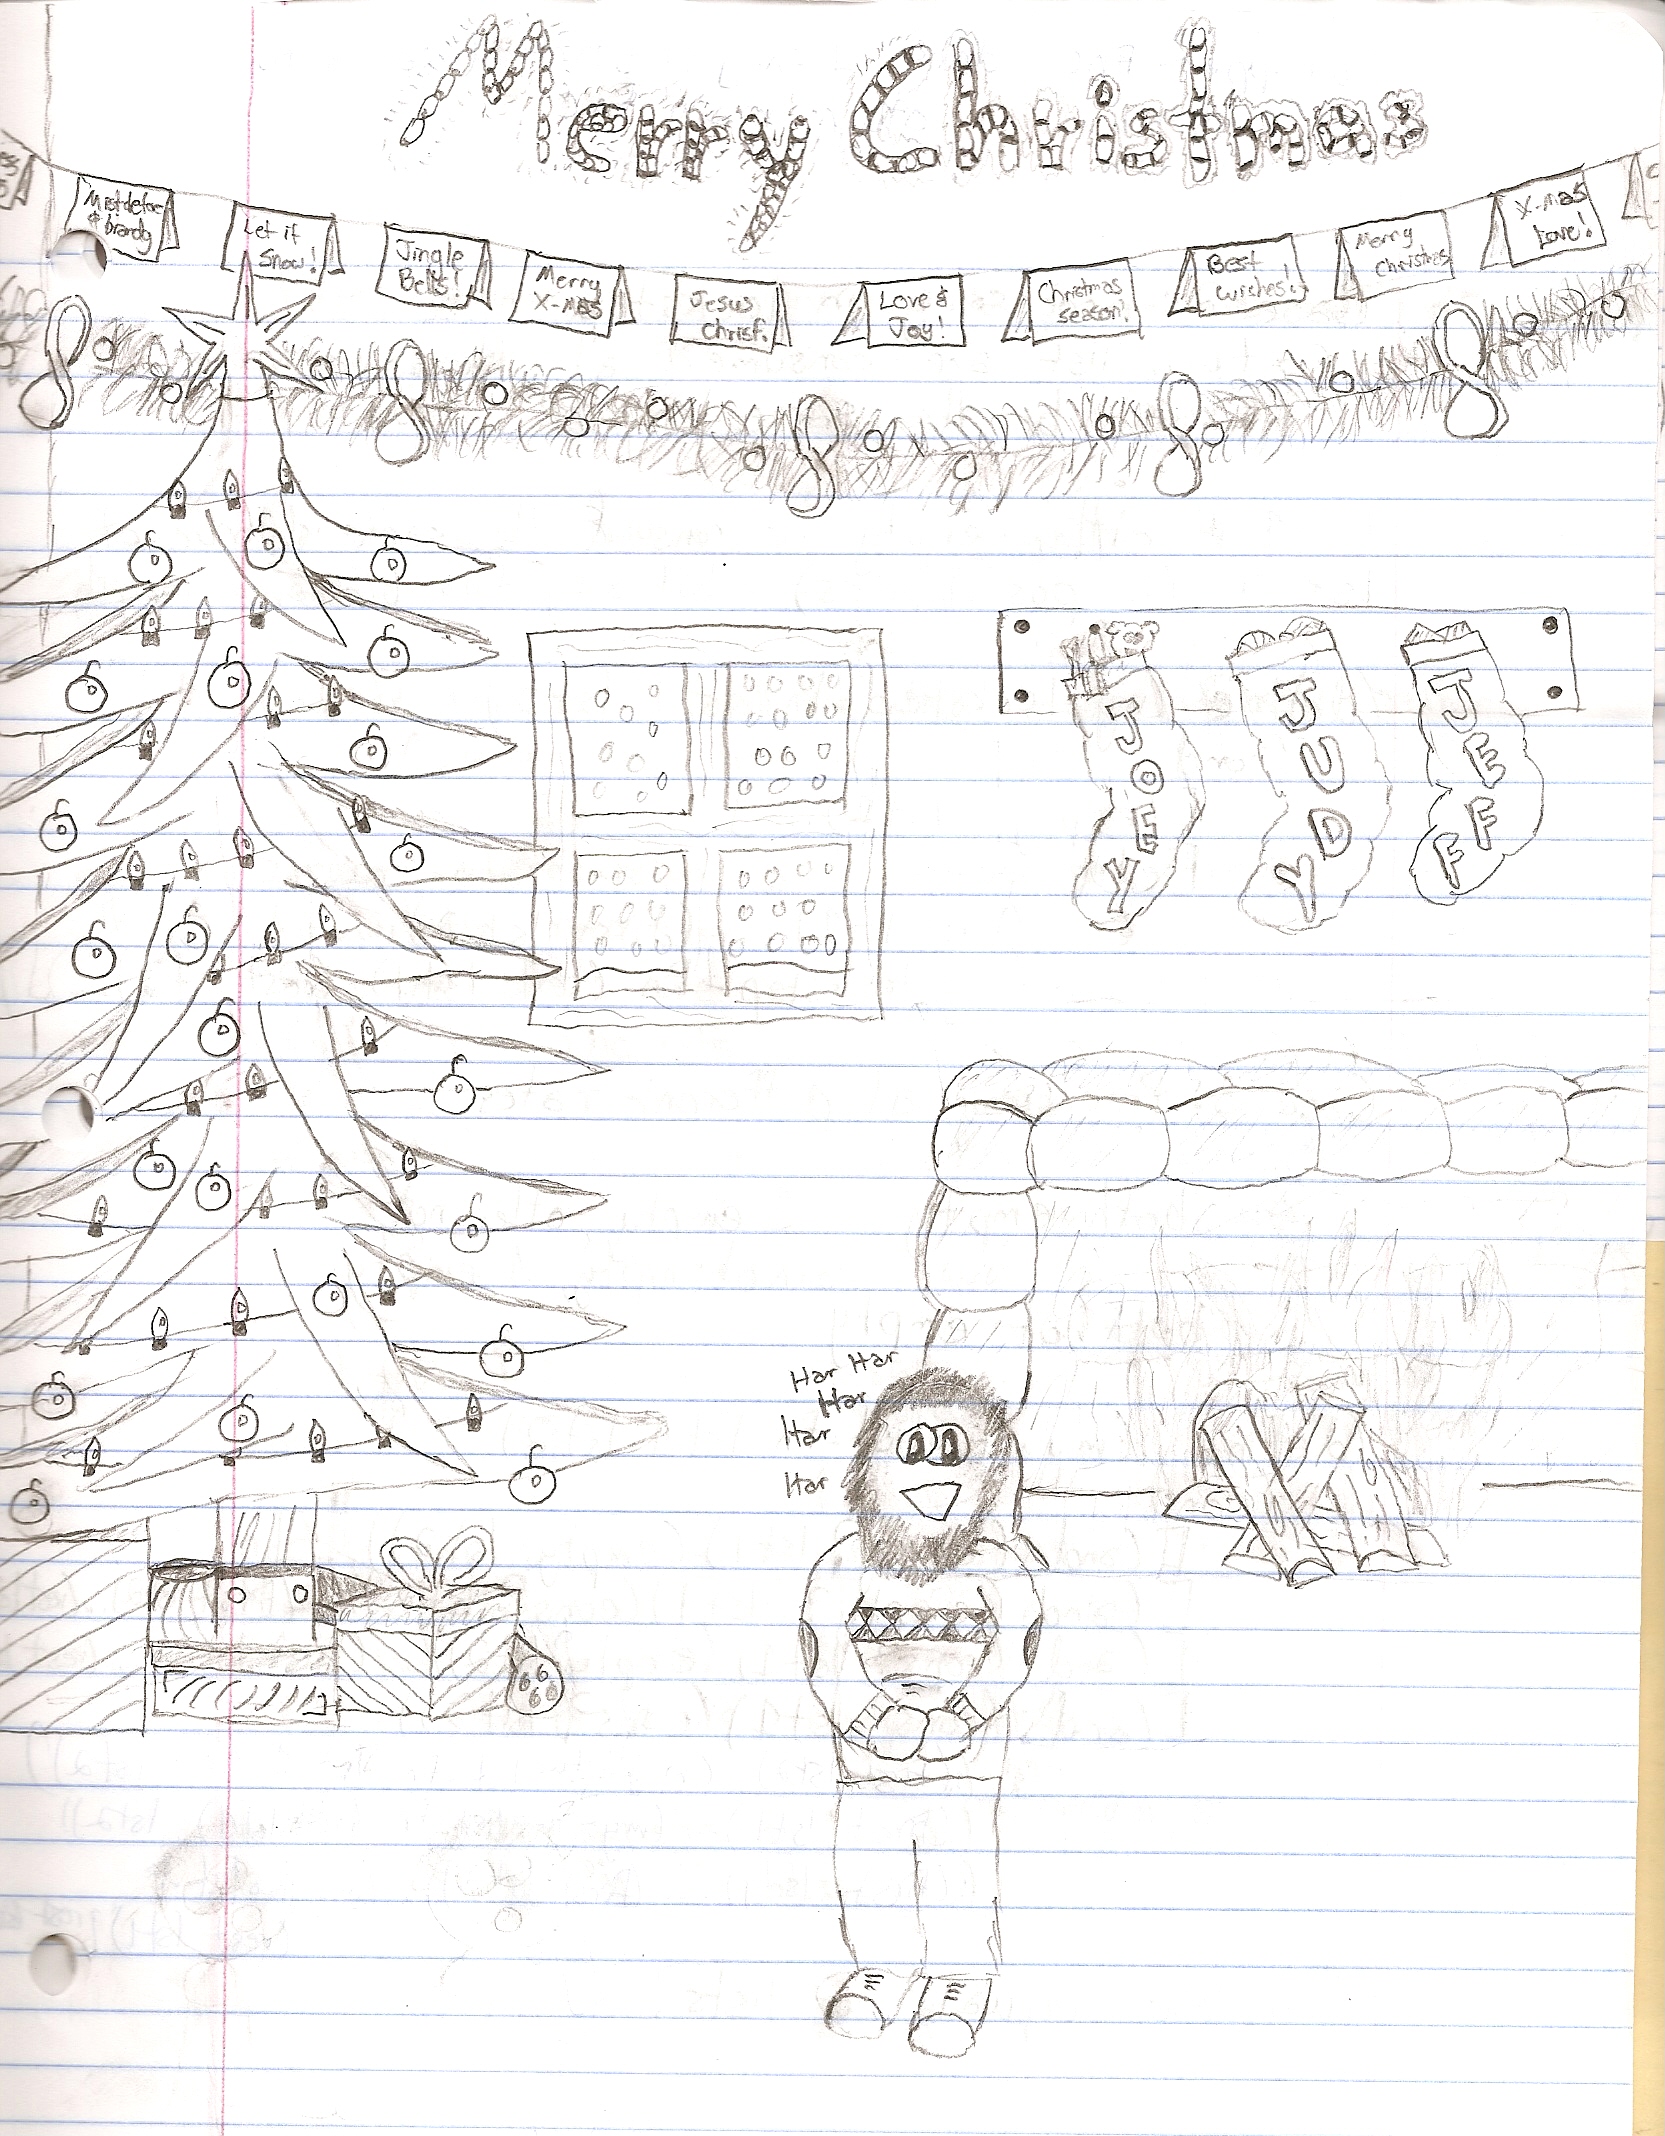 Merry Christmas
& brandy
Let it
Snow!
Jingle
Bells!
Merry
X-mas
Jesus
Christ.
Love &
Joy!
Christmas
season!
Best
wishes!
Merry
Christmas
X-mas
Love!
JOEY
JUDY
JEFF
Har Har
Har
Har
Har